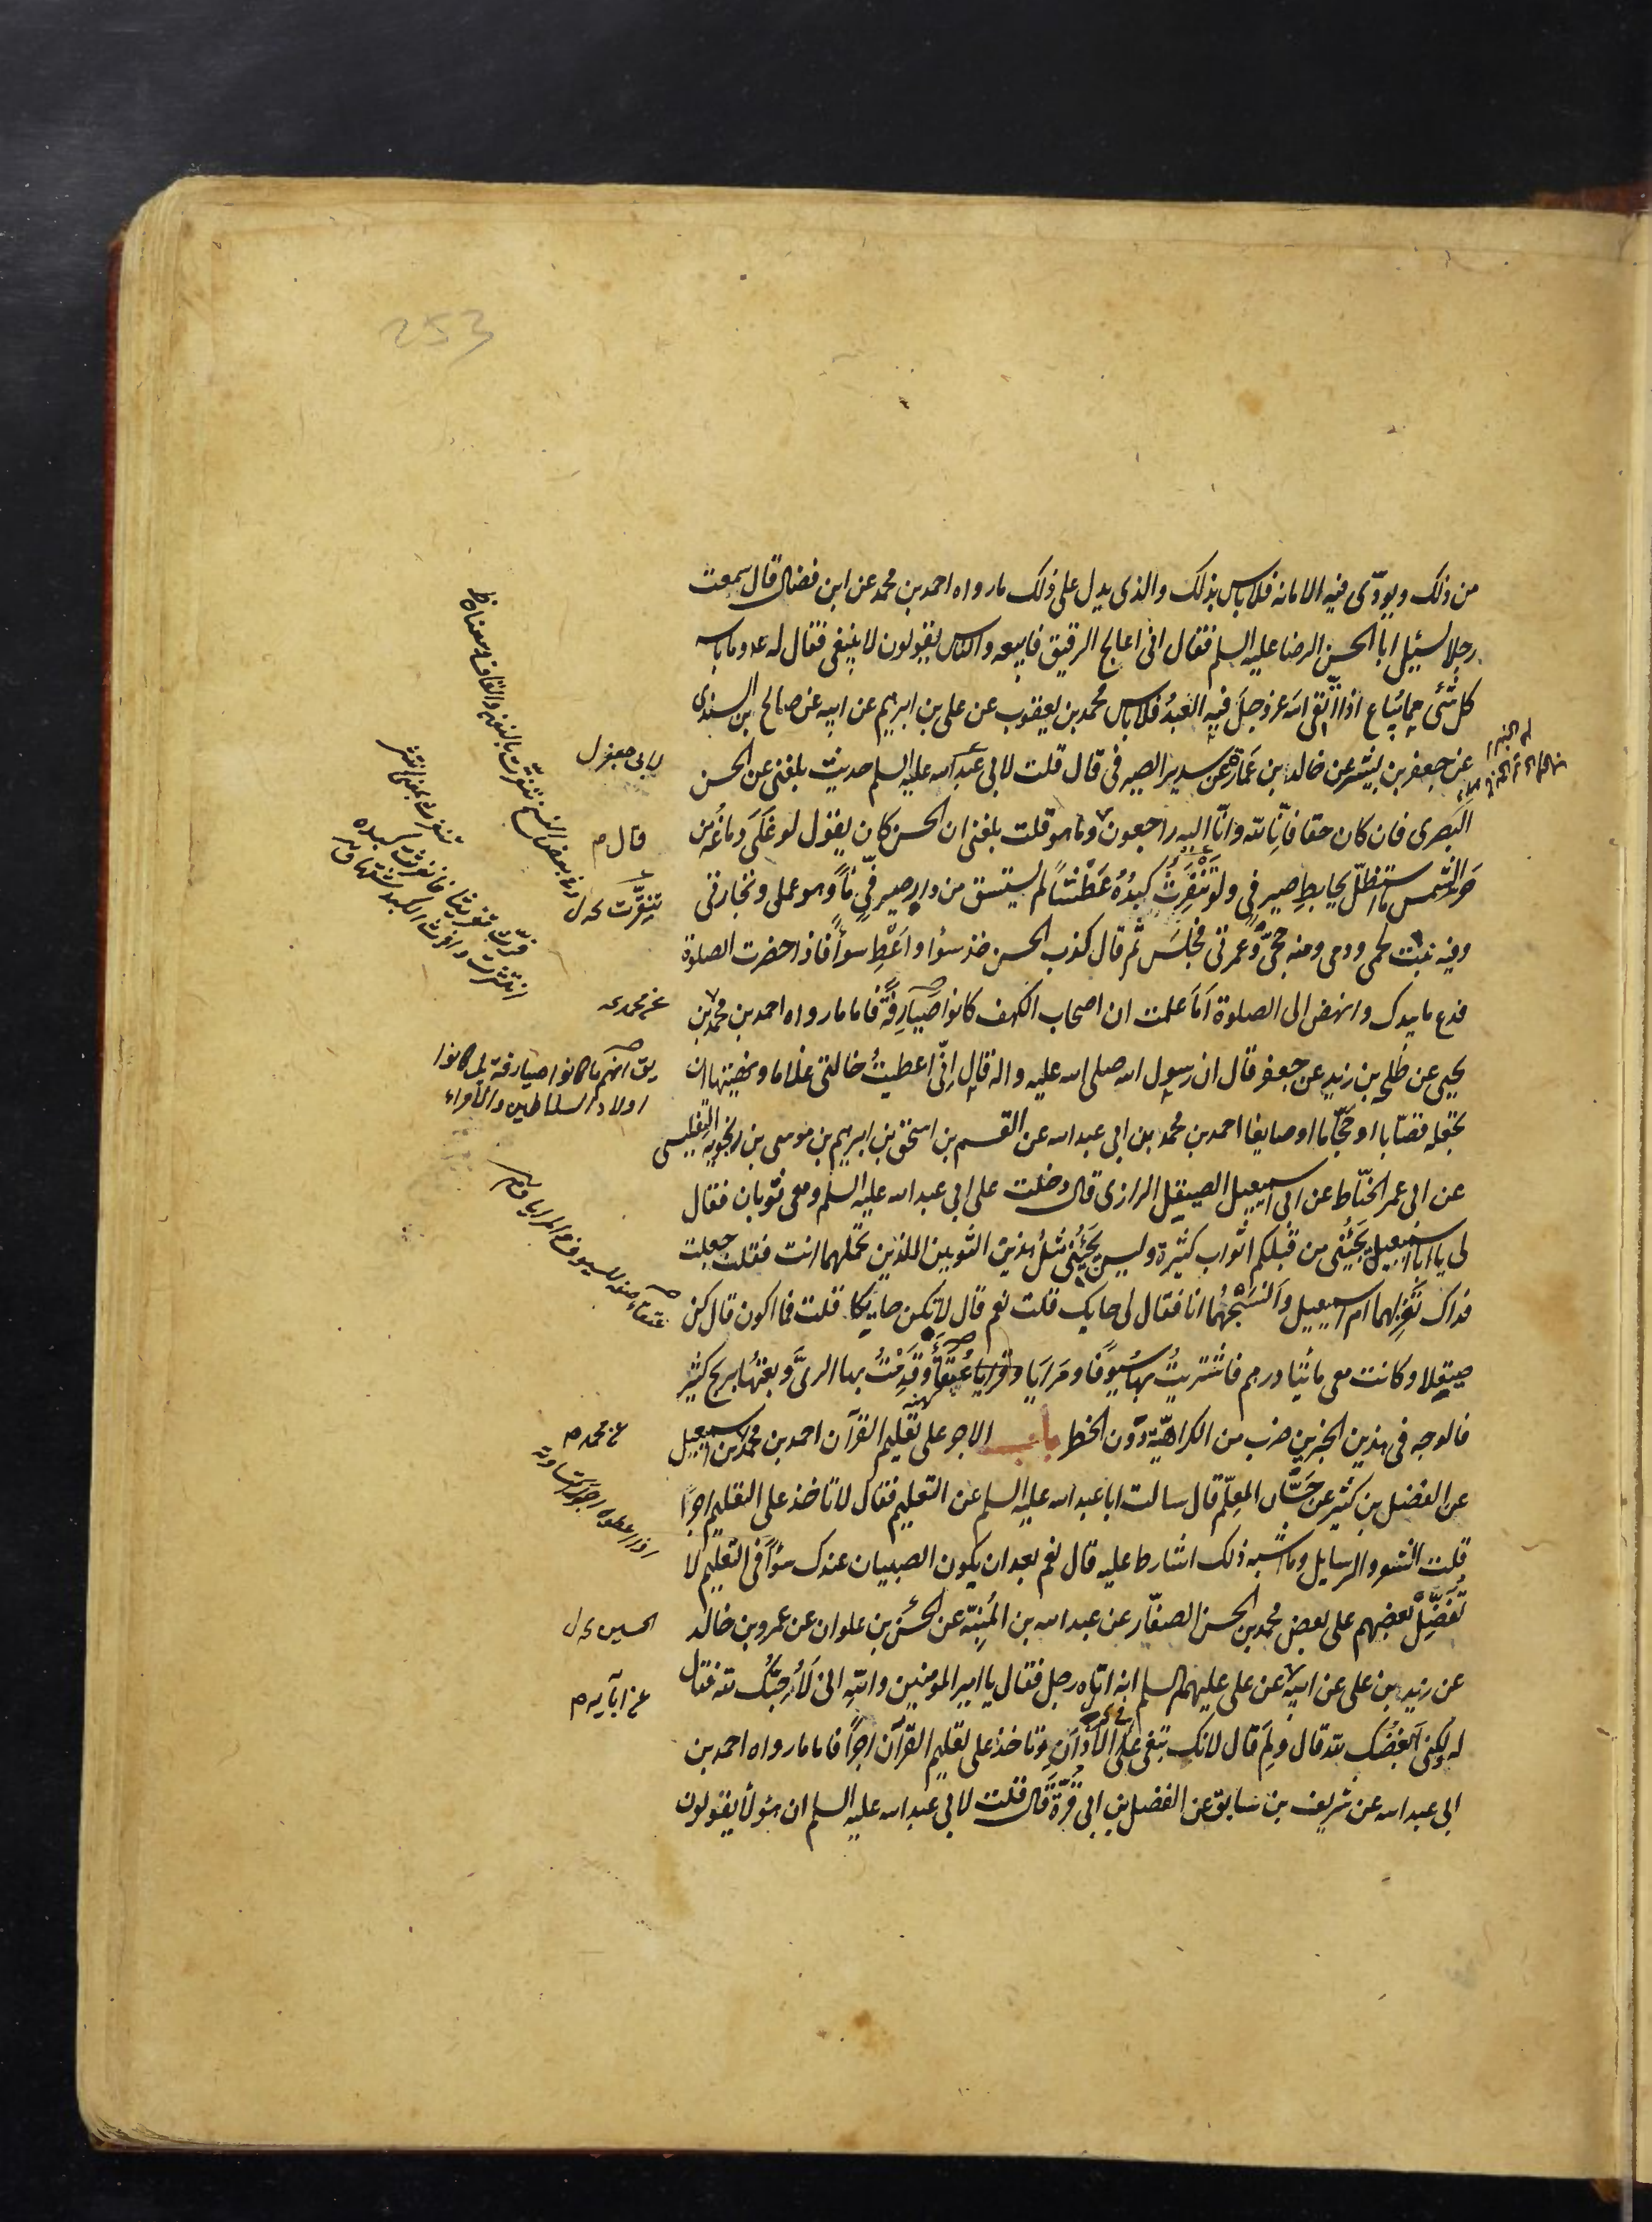 253
من ذلك ويودّى فيه الامانه فلاباس بذلك والذى يدل على ذلك ما رواه احمد بن محمد عن ابن فضال قال سمعت
رجلا سئيل ابا الحسن الرضا عليه السلم فقال انى اعالج الرقيق فابيعه والناس يقولون لا ينبغى فقال له عه وما باسه
كل شئى مما يُباع اذا اتّقى الله عز وجلّ فيه العبدُ فلاباس محمد بن يعقوب عن على بن ابرهيم عن ابيه عن صالح بن السندى
عن جعفر بن بشير عن خالد بن عمارة عن سدير الصيرفى قال قلت لابى عبد الله عليه السلم حديث بلغنى عن الحسن
البَصرى فان كان حقا فانّا لله وانّا اليه راجعون وما هو قلت بلغنى ان الحسن كان يقول لو غَلَى دِماغُه من
حرّ الشمس ما استظلّ بحايطِ صيرفىٍ ولو تَنَفَّرَتْ كبدُهُ عَطْشًا لم يستسق من دار صيرفىّ مآءً وهو عملى وتجارتى
وفيه نبت لحمى ودمى ومنه حجّى وعُمرتى فجلسَ ثم قال كذب الحسن خذ سوا واَعْطِ سوآءً فاذا حضرت الصلوة
فدع ما بيدك وانهض الى الصلوة اَمَا علمت ان اصحاب الكهف كانوا صَيَارِفَةً فاما ما رواه احمد بن محمد بن
يحيى عن طلحه بن زيد عن جعفر قال ان رسول الله صلى الله عليه واله قال اِنّى اعطيتُ خالتى غلاما ونهيتها ان
تجعله قصّابا او حجّاما او صايغا احمد بن محمد بن ابى عبد الله عن القسم بن اسحق بن ابرهيم بن موسى بن زنجويه التفليسى
عن ابى عمر الحنّاط عن ابى اسمعيل الصيقل الرازى قال دخلت على ابى عبد الله عليه السلم ومعى ثوبان فقال
لى يا ابا اسمعيل يَجيئنى من قبلكم اثواب كثيرة وليس يَجيئنى مثلُ هذين الثوبين اللذين تحملهما انت فقلت جعلت
فداك تَغْزِلهما ام اسمعيل واَنْسَجُهُما انا فقال لى حايك قلت نعم قال لا تكن حايكا قلت فما اكون قال كن
صيقلا وكانت معى مائتا درهم فاشتريتُ بها سُيوفًا ومَرَايَا وقرايا عُتقًا وقدِمْتُ بها الرىّ وبعتُها بربح كثير
فالوجه فى هذين الخبرين ضرب من الكراهيّة دون الحظر باب الاجر على تعليم القرآن احمد بن محمد بن اسمعيل
عن الفضل بن كثير عن حَسَّان المعلّم قال سالت ابا عبد الله عليه السلم عن التعليم فقال لا تاخذ على التعليم اجرًا
قلت الشعر والرسايل وما اشبه ذلك اشارط عليه قال نعم بعد ان يكون الصبيان عندك سوآءً فى التعليم لا
تُفَضِّلْ بعضهم على بعض محمد بن الحسن الصفّار عن عبد الله بن المُنبّه عن الحسن بن علوان عن عمرو بن خالد
عن زيد بن على عن ابيه عن على عليهم السلم انه اتاه رجل فقال يا امير المومنين واللهِ انى لَاُحِبّك لله فقال
له ولكنى اَبْغِضُك لله قال ولِمَ قال لانك تبغى على الاَذَانِ وتاخذ على تعليم القرآن اجرًا فاما ما رواه احمد بن
ابى عبد الله عن شريف بن سابق عن الفضل بن ابى قُرّة قال قلت لابى عبد الله عليه السلم ان هٓؤلاء يقولون
لابى جعفر ل
قال م
عن محمد عه
يق انهم ما كانوا صيارفة بل كانوا
اولاد السلاطين والامراء
عن محمد م
الحسين كه ل
عن ابآيه م